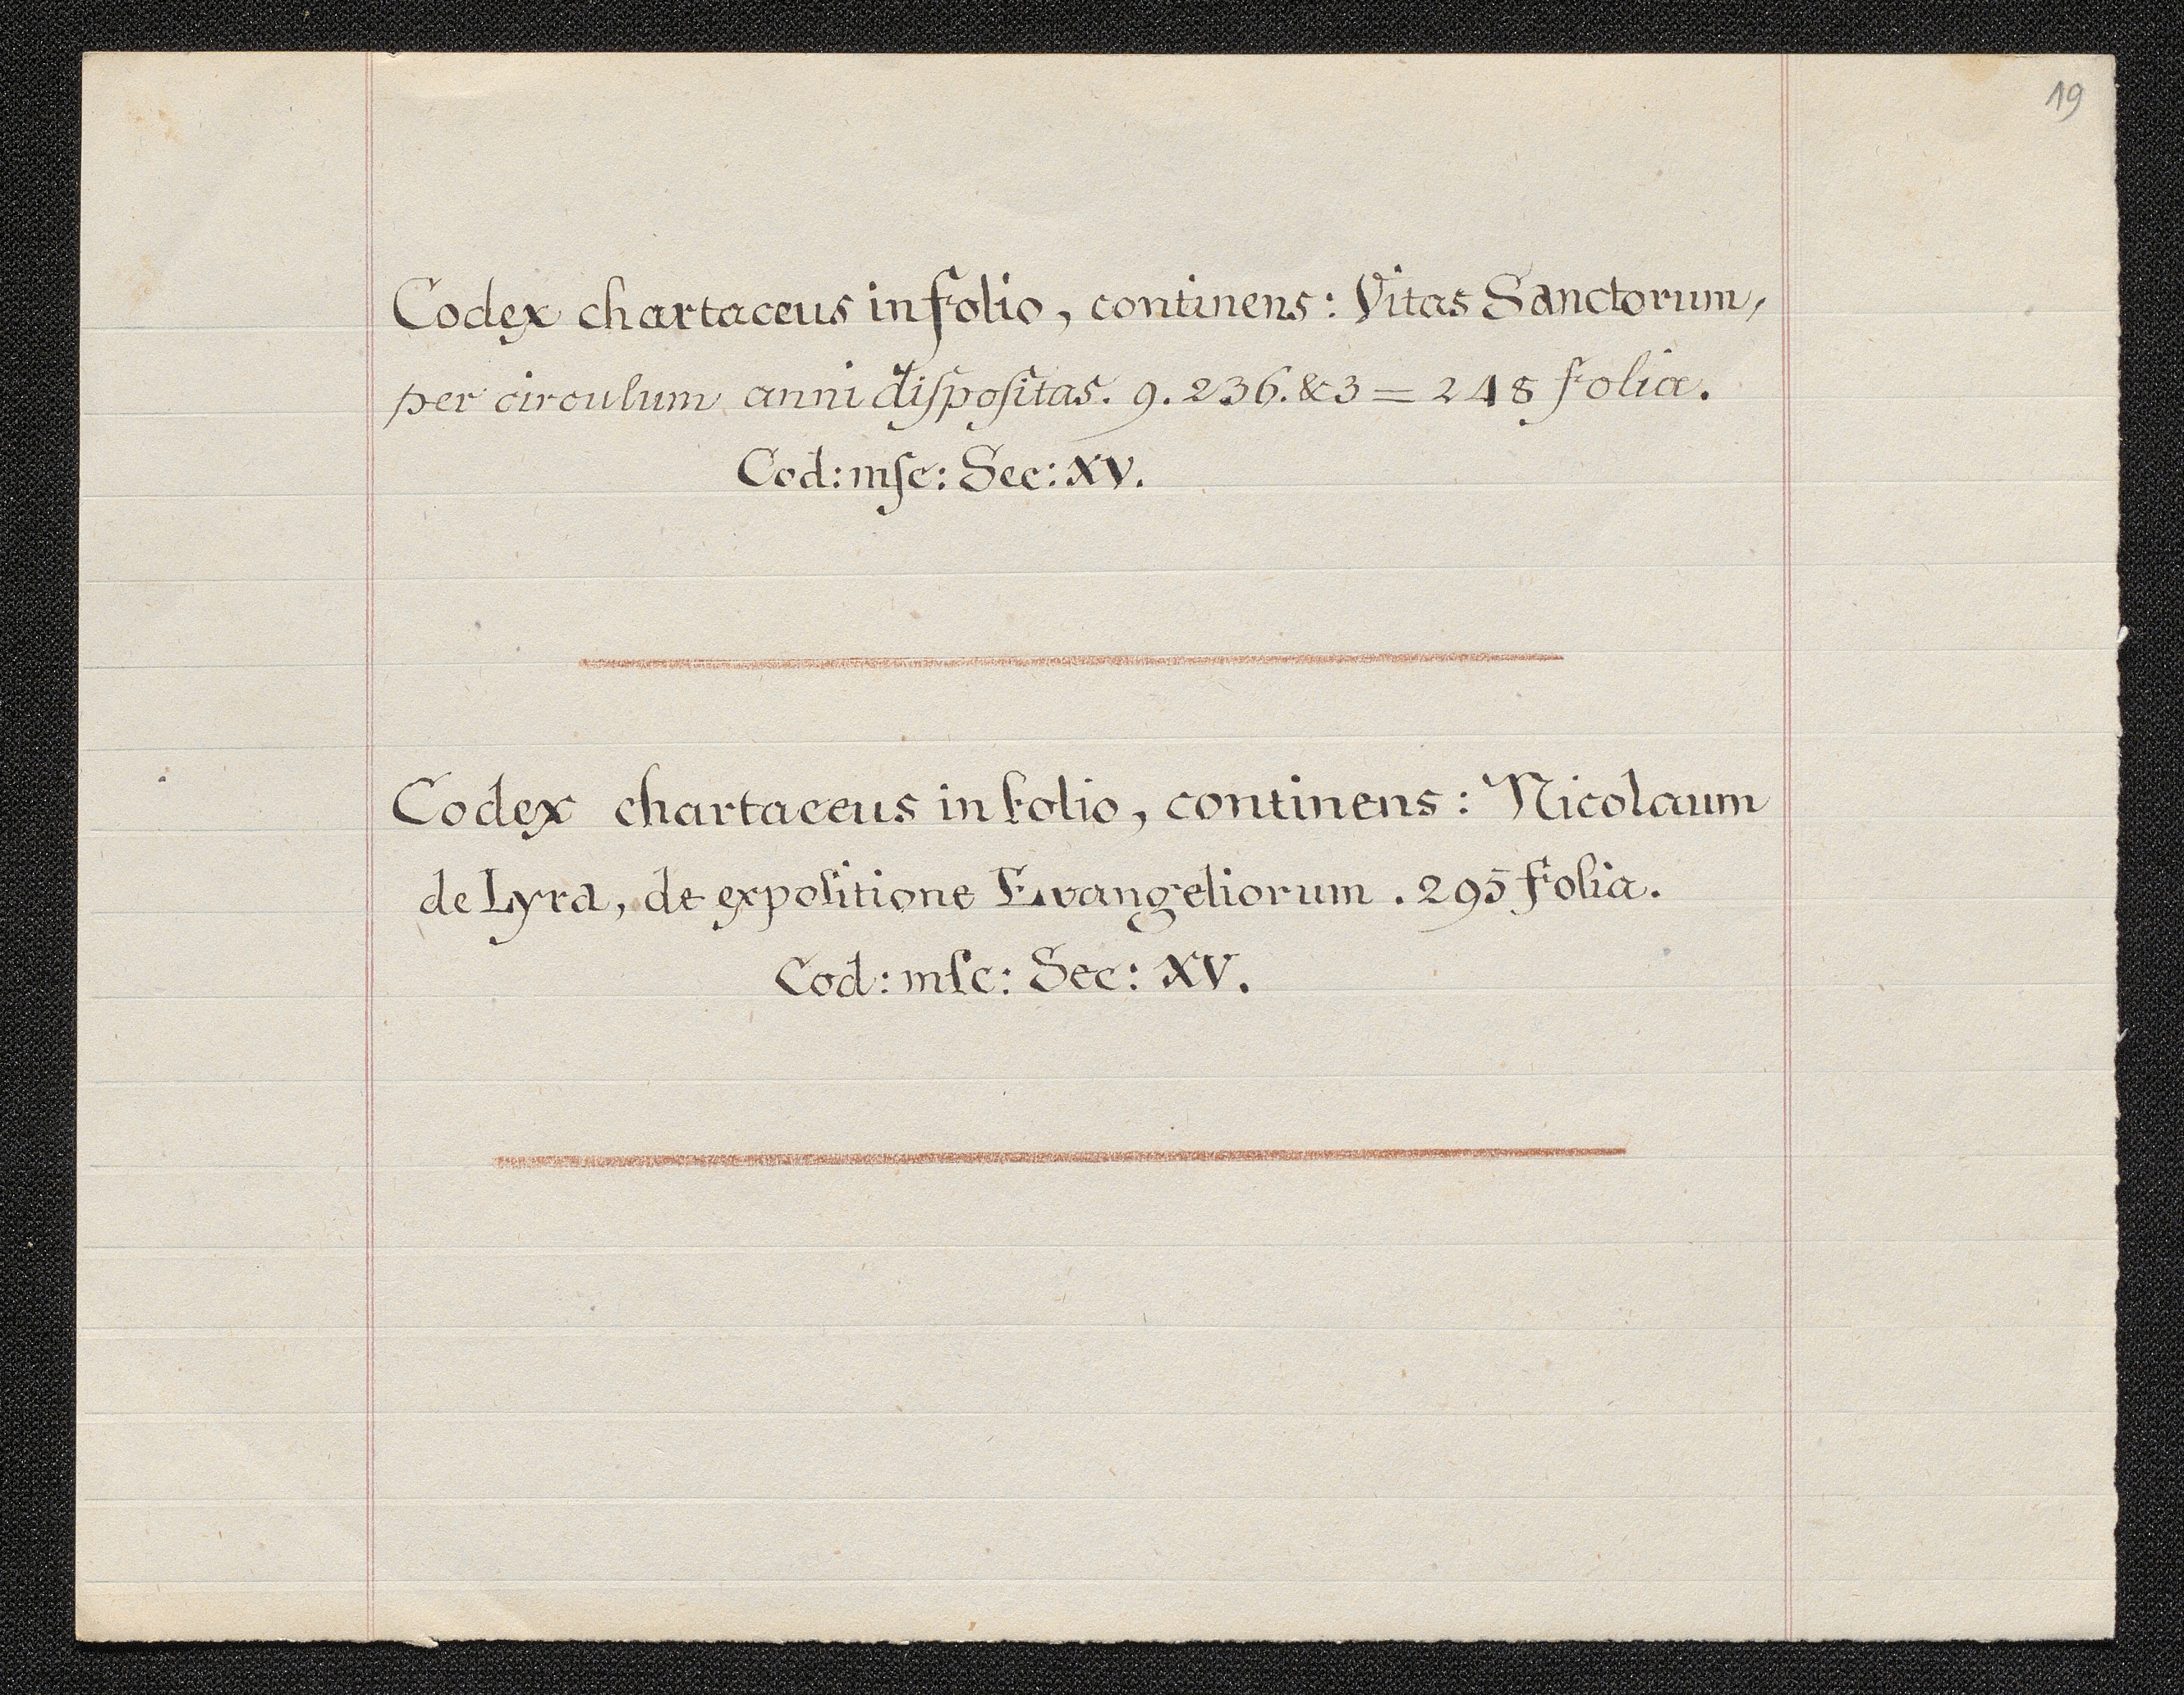 19
Codex chartaceus in folio, continens: Vitas Sanctorum,
per circulum anni diſpoſitas. 9. 236. & 3 = 248 folia.
Cod: mſc: Sec: XV.
Codex chartaceus in folio, continens: Nicolaum
de Lyra, de expoſitione Evangeliorum. 295 folia.
Cod: mſc: Sec: XV.